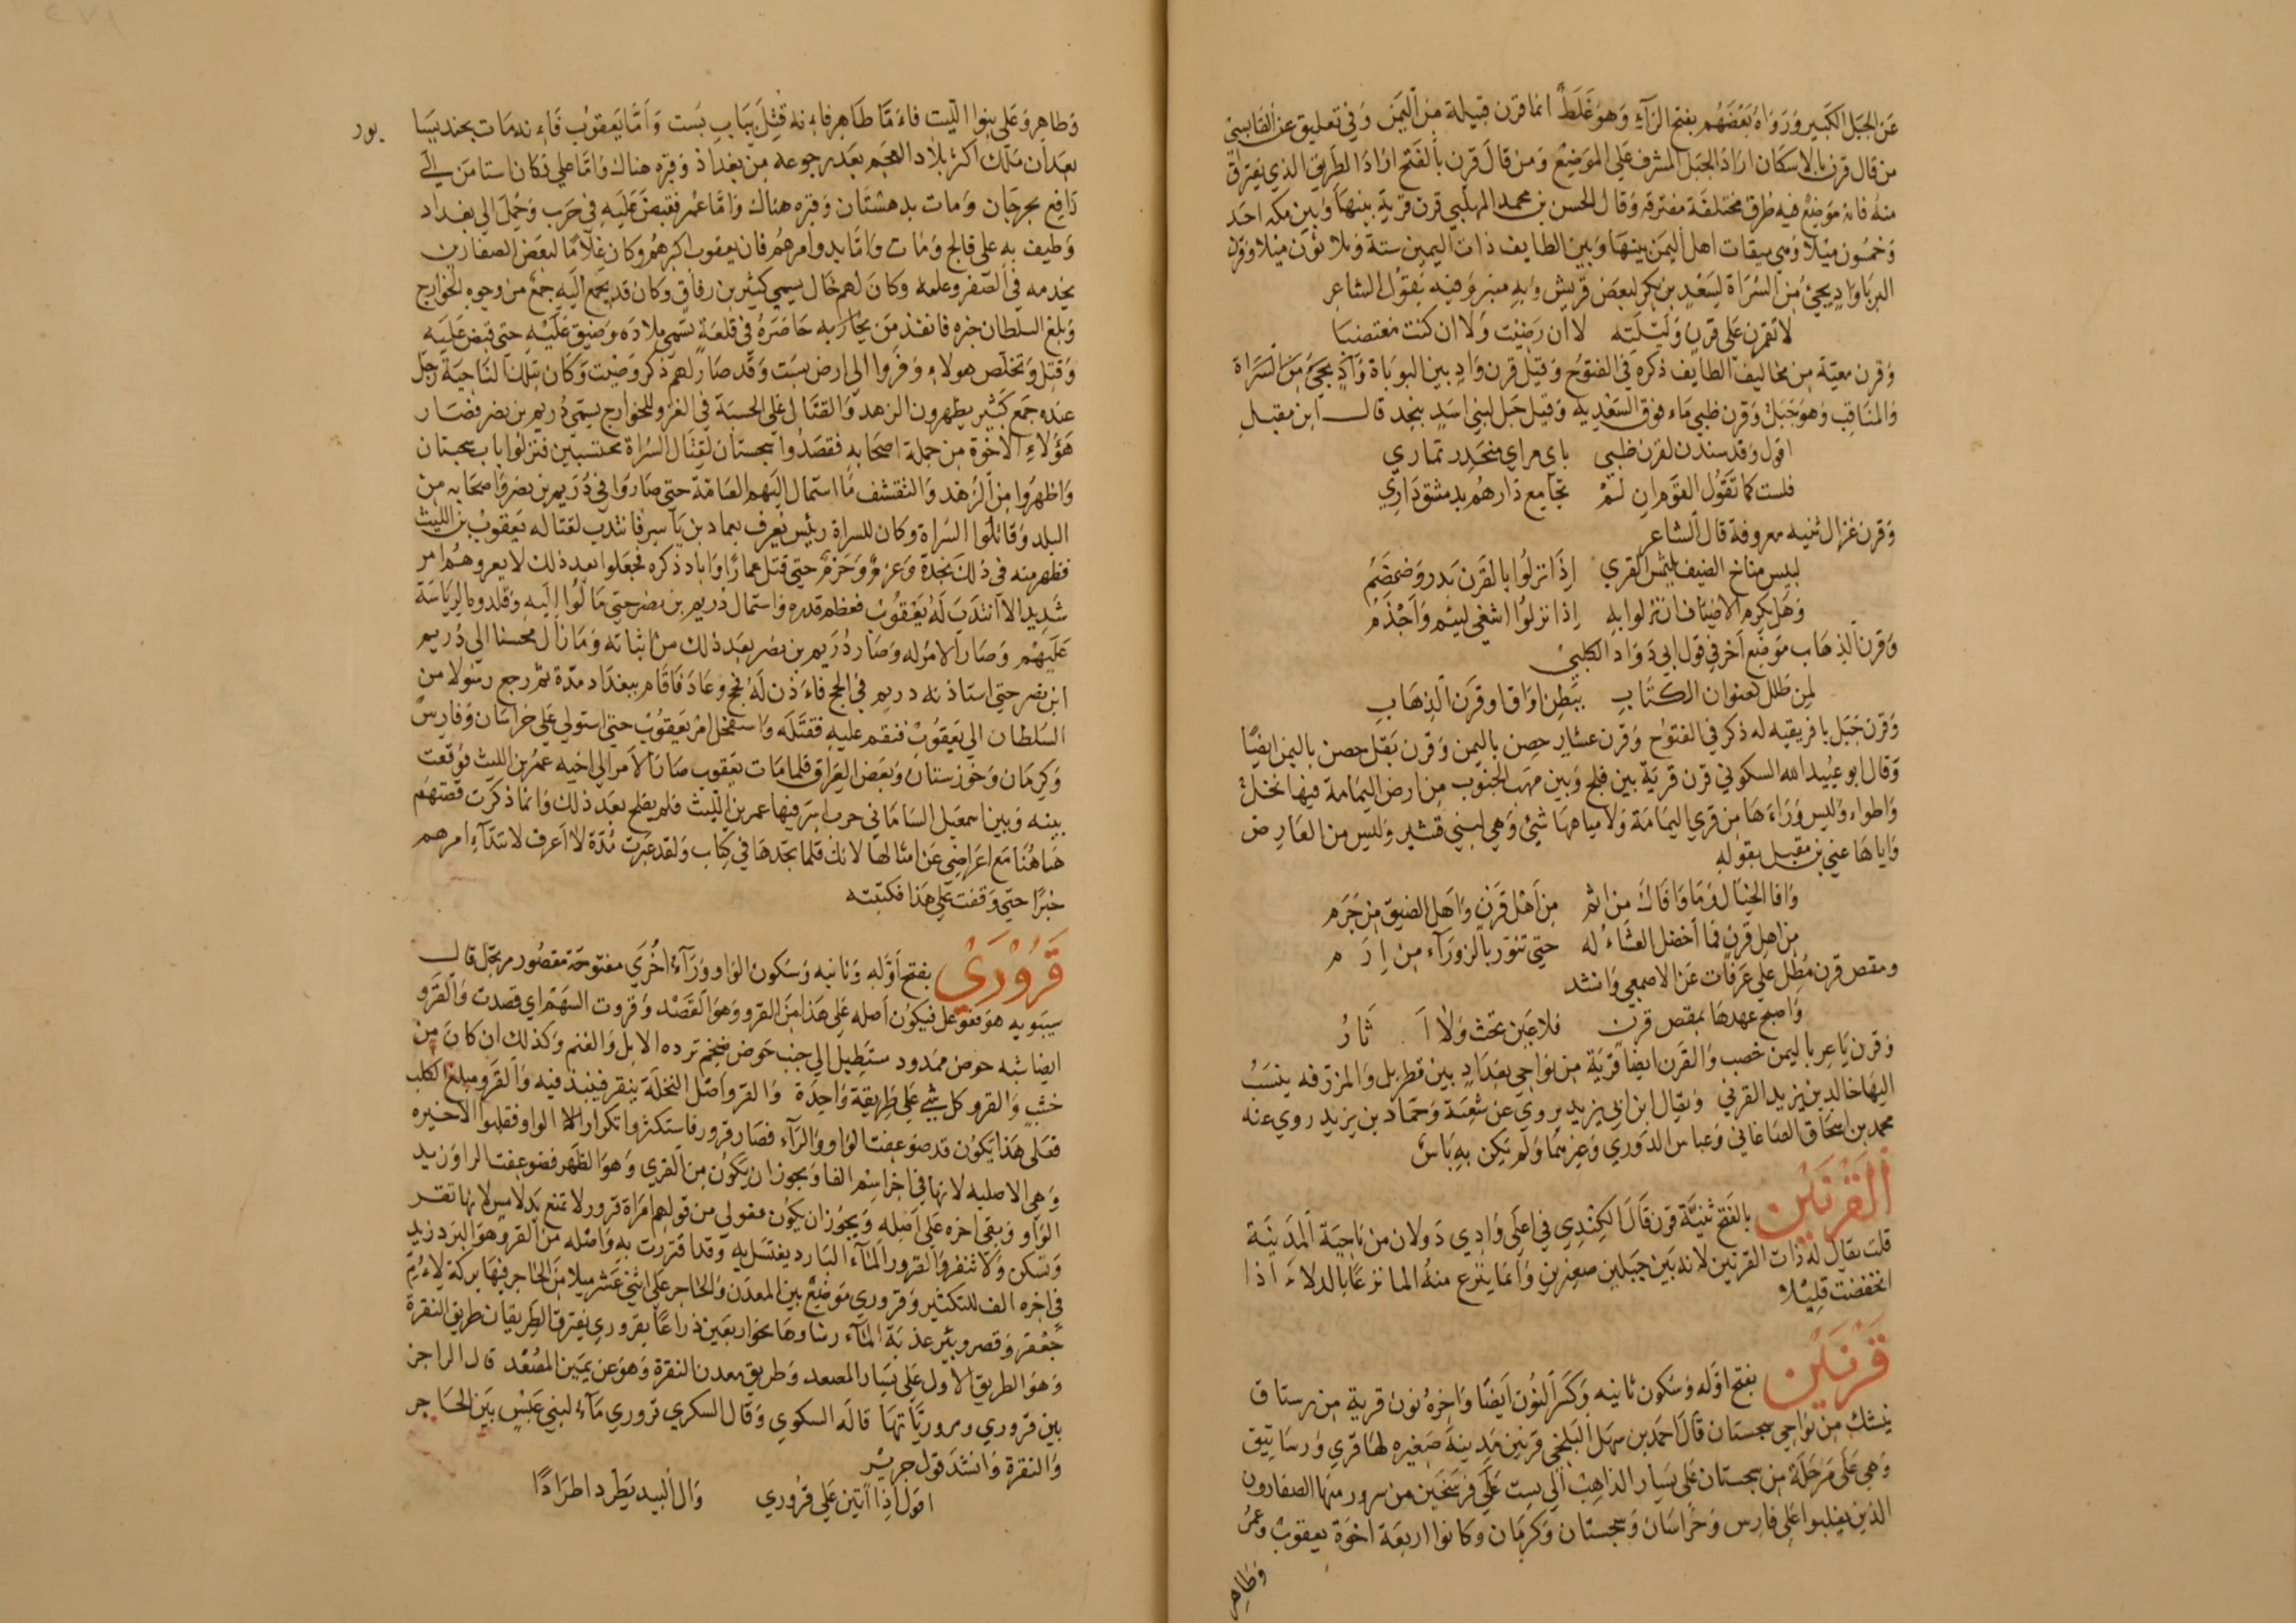 عَن الجبَل الكَبير وَرَوَاهُ بَعْضَهُم بفتح الرَّآءِ وَهوَ غَلَطٌ انما قرن قبيلة مِن اليَمَن وَفي تعليق عن القابسي
من قال قرن بالاسكان ارادَ الجبَل المشرف عَلي الموَضِع وَمن قالَ قَرن بالفَتح ارَادَ الطريق الذي يفترق
منه فانه مَوَضِع فيه طرق مختلفَة مفترقه وَقال الحسن بن محمد المهلبي قرن قرية بينهَا وَبين مكه احَد
وَخمسُون ميْلاً وَهي ميقات اهل اليمَن بينهَا وَبين الطايف ذات اليمين ستة وَثلاثون ميلا وَقرن
البَربَا وَادٍ يجيُ مِنَ السَّرَاة لسَعْدِ بن بكر لبعَض قريش وَبهِ منبر وَفيه يَقوُل الشاعر
لا تقمرن عَلى قرنٍ وَلَيْلَته لا ان رَضِيْت وَلا ان كنت مغتصبَا
وَقرن معيّة مِن مخاليف الطايف ذكره في الفتوُح وَقيل قرن وَادٍ بين البوبَاة وَادٍ يجيُ مِنَ السَّرَاة
وَالمنَاقِب وَهوَ جَبَل وَقرن ظبي مَاء فوق السَّعْديه وَقيل جَبل لبَني اسَدٍ بنجد قال ابن مقبل
اقول وَقد سندن لقرن ظبي باي مراي منحَدر تماري
فلست كما تَقوُل القوَم ان لَمْ تجامع دَارهُم بدمشق دَاري
وَقرن غزال ثنيه معروفة قال الشاعر
لبيس مناخ الضيف يلتمسَ القري اِذَا نزلوُا بالقرن بَدر وَضمضَمُ
وَهَل يكرم الاضيَاف ان نزلوا به اِذا نزلوُا اشغى لئيم وَاَجْذمُ
وَقرن الذهَاب موَضِع اَخر في قول ابي دَوَاد الكلبيْ
لِمن طَلل كعنوان الكتَابِ ببَطن اوَاق او قَرَن الذهَابِ
وَقرن جَبَل بافريقيه له ذكر في الفتوُح وَقرن عشار حِصِن باليمن وَقرن بَقل حصن باليمن ايضًا
وَقال ابو عُبيد الله السكوني قرن قرية بين فلج وَبين مهب الجنوب من ارض اليَمَامَة فيها نخل
وَاطواء وَليس وَرَاءَ هَا من قري اليمَامَة وَلا مياهِهَا شيُ وَهي لبني قشير وَليس من العَارض
وَاياهَا عني بن مقبل بقوله
وَافا الخيَال وَمَا وَافَاكَ مِن امم مِن اَهْل قَرَنٍ وَاَهل الضيق مِن حَرَم
من اهل قرن فما اخضل العشَاءُ له حتي تنوّر بالزورَآء من اِرَم
ومقص قرن مُطِل عَلي عَرَفَات عَن الاصمعي وَانشد
وَاصبح عهدهَا بمقص قَرن فلا عَين تحث وَلا اَثارُ
وَقرن يَاعِر باليمن خصب وَالقَرن ايضا قَرية مِن نوَاحي بغدَادٍ بين قطربل وَالمزرفه ينسَبُ
اليهَا خالد بن يزيد القرني وَيقال ابن ابي يزيد يروي عن شعبَة وَحمّاد بن يزيد روي عنه
محمد بن اسحَاق الصَاغاني وَعبَاس الدوَري وَغيرهما وَلَم يَكن بهِ بَاسُ
اَلْقَرْنَيْن بالفَتح ثنيَّة قَرن قَالَ الكِندي في اعلَى وَادِي دَولان من نَاحِيَة المَدينَة
قلت يقال له ذات القرنَين لانه بَين جَبَلين صغيرين وَانما ينزع منهُ الما نزعًا بالدلاءَ اذا
انخفضت قليْلاً
قَرْنَيْن بفتح اوله وَسُكون ثانيه وَكسَر النُون ايضَا وَاخِرهُ نون قرية مِن رستاق
نيشك مِن نوَاحي سجستان قالَ احمَد بن سهَل البَلخي قَرنين مَدينة صَغيره لها قري وَرسَاتيق
وَهي عَلَي مَرحَلَة من سجستان عَلى يَسار الذاهِب الي بست عَلَي فرسَخَين من سرور منهَا الصَفارون
الذين تغلبوا عَلى فارس وَخرَاسَان وَسجستان وَكرمَان وَكانوا اربعَة اخوَة يعقوب وَعمرُ
وَطاهر
وَطاهر وَعَلي بنوا الليت فاءَمَّا طَاهِر فاِءنه قُتِلَ بِبَابِ بَست وَاَمَّا يَعقوُب فَاِءنه مَات بجنديسَا بور
بعدَان مَلك اكثر بلاد العجَم بعَد رجوعه مِن بغداذ وَقبره هناك وَامّا علي فكان استامن الي
رَافِع بجرجَان وَمات بدهستَان وَقبره هنَاك وَامَّا عمُر فقبض عَليَهِ في حَربٍ وَحُمِل الي بغداد
وَطيف به على فالج وَمات وَامّا بدو امرهُم فان يعقوب اكبرهُم وَكان غلامًا لبَعض الصفارين
يخدمه في الصّفر وَعلمه وَكانَ لهم خَال يسمي كثير بن رفَاق وَكان قد يجمّع اليَه جَمْع من وجوه الخوَارج
وَبلغ السلطان خبره فانفذ مَن يحَاربه حَاصَرَهُ في قلعَة تسمّي ملادَه وَضيق عَليَه حتى قبض عَليَه
وَقتِل وَتخلّصَ هولاء وَفروا الي ارض بست وَقد صَار لهم ذكر وَصَيت وَكان بتلك الناحيَة رَجُل
عنده جمَع كثير يظهرون الزهد وَالقتال عَلي الحسبَة في الغزو للخوارج يسمّي دُريم بن نصر فصَار
هَؤُلاَءِ الاخْوَة مِن جملة اصحَابه فقصَدُوا سجستان لقِتَال الشراة محتسبين فنزلوا باب سجستان
وَاظهرُوا مِن الزهْد وَالتقشف مَا استمال اليَهم العَامَّة حتى صَاروَا في دُريم بن نصر وَاصحَابه من
البلد وَقاتلوا الشراة وَكان للسراة رئيس يُعرف بعماد بن يَاسِر فانتدب لقتاله يَعقوُبْ بن الليث
فظهر منه في ذلكَ نجدَةٌ وَعَزمٌ وَحَزمٌ حتي قتل عمارًا وَاباد ذكره فجعَلوا بعد ذلك لا يعروهُم امر
شَديد الا انتدَبَ لهُ يَعْقوُبْ فعظم قدره وَاستمال دريم بن نصر حتى مَالوُا اِليَهِ وَقلدوه الريَاسَة
عَليَهْم وَصَار الامر له وَصَار دُرَيم بن نصر بعَد ذلك من اتباعه وَمَا زال محسنا الي دُريم
ابن نصر حتي استاذنه دريم في الحج فاءَذن لَهُ فحج وعَادَ فاقام ببغدَاد مدّة ثم رجع رسُولا من
السُلطان الي يَعقوُبْ فنقم عليه فقتَلَه وَاستفحل امرُ يَعقوُبْ حتي استولي عَلي خراسَان وَفارس
وَكِرمَان وَخوزستنان وَبَعض العِرَاق فلما مَات يَعقوب صَارَ الاَمر الي اخيه عمرُ بن الليث فوَقعت
بينه وَبين اسمعيَل السَامَاني حرب اسِرَ فيها عمر بن الليث فلم يفلح بعَد ذلك وَانمَا ذكرت قصتهَم
هَاهُنَا مَع اعرَاضي عَن امثالهَا لانك قلما تجدهَا في كتاب وَلقد عَبرت مُدَّة لا اَعرف لابتدَآءِ امرهم
خبرًا حَتّي وَقفت عَلي هَذا فكتَبته
قَرَوْرَيْ بفتح اَوّلِه وَثانيه وَسُكون الوَاو وَرَآء اُخْرَي مفتوحَة مَقصُور مرتجل قال
سيبَويه هوَ فعَوعَل فيكون اَصله عَلي هَذا مِنَ القرو وَهوَ القصَد وَقروت السَهْم اي قصدت وَالقرو
ايضا شبه حوض ممَدود مستَطِيل الي جنب حَوض ضخم ترده الابل وَالغنم وَكذلك ان كانَ مِن
خشب وَالقرو كل شيءٍ عَلي طَريقةٍ وَاحِدَة وَالقرو اَصل النخلَة ينقر فينبذ فيه وَالقرو ميلغ الكلب
فعَلى هَذا يكوُن قد ضوعفت الوَاو وَالرَآء فصَار قرور فاستكثروا تكرار الواو فقلبوا الاخيره
وَهي الاصليه لانها في اخر اسم الفا وَيجوز ان يكوُن مِن القري وَهوَ الظهر فضوعفت الراو زيد
الوَاو وَبقي اخره عَلى اصَله وَيجوز ان يكون فعَولي من قولهِم امرَاة قرور لا تمنع يَد لامس لانها تقر
وَتسكن وَلا تنفر وَالقرور المآءَ البَارد يغتسَل بهِ وَقد اقتررت بهِ وَاصَله مِن القر وَهوَ البَرد زيد
في اخره الف للتكثير وَقروري مَوَضِعٌ بين المعدَن وَالحاجر عَلى اثني عَشر ميلا مِن الحاجر فيها بركَة لاءُمِّ
جَعْفر وَقصر وبئر عذبَة المَآء رشاوهَا نحو اربعَين ذراعًا بقروري يفترق الطريقان طريق النقرة
وَهو الطريق الاول عَلي يَسَار المصعد وَطريق معدن النقرة وَهوَ عَن يَمين المصْعَد قال الراجز
بين قروري ومروريَّاتهَا قالَه السكوي وَقال السكري قروري مَآء لبني عَبْسٍ بين الحَاجر
وَالنقرة وَانشد قول جرير
اقول اِذا اَتين عَلي قرُوري وَال البيد يَطرد اطرَادًا